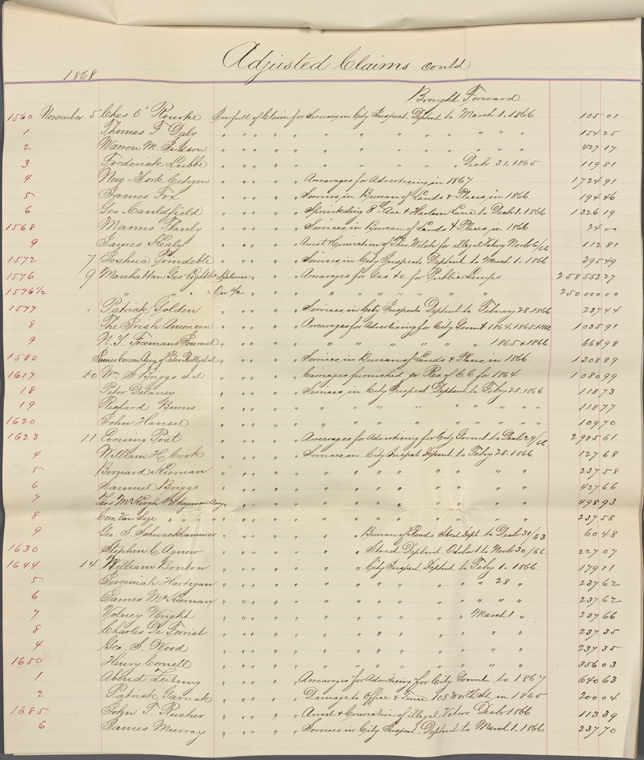 Adjusted Claims contd
1868
Brought Forward
1560 November 5 Chas O' Rourke In full of Claim for Services in City Inspect Deptmt to March 1. 1866 105 01
1 Thomas F Daly " " " " " " " " " " 154 25
2 Warren M. " " " " " " " " " " 427 17
3 Frederick Lubbe " " " " " Decbr 31. 1865 119 81
4 New-York Citizen " " " " Arrearages for Advertising in 1867 1724 91
5 James Fox " " " " Services in Bureau of Lands & Places, in 1866 194 46
6 Geo Cauldfield " " " " Sprinkling 8" Ave & Harlem Lane to Decbr 1. 1866 1326 19
1568 Manus " " " " Services in Bureau of Lands & Places in 1866 24 00
9 James Healy " " " " Arrest & Conviction of for illegal Voting Novbr 6/66 112 81
1572 7 Joshua " " " " Services in City Inspects Deptmt to March 1. 1866 295 49
1576 9 Manhattan Gas Light Co " " Arrearages for Gas &c for Public Lamps 258 553 27
1576 1/2 " " " " " " " " " 250 000 00
1577 " Patrick Golden " " " " Services in City Inspects Deptmt to February 28. 1866 237 44
8 The Irish American " " " " Arrearages for Advertising for City Govmt 1864. 1865 & 1866 1035 91
9 N. Y. Freemans Journal " " " " " " " " 1865 & 1866 664 98
1580 " " " " Services in Bureau of Lands & Places, in 1866 1308 89
1617 10 Wm S Briggs " " " " Carriages furnished for Res of C. C. for 1864 1080 99
18 Peter Delaney " " " " Services in City Inspect Deptmt to Feby 28. 1866 118 73
19 Richard Burns " " " " " " " " " " 118 77
1620 John Hansel " " " " " " " " " " 109 70
1623 11 Evening Post " " " " Arrearages for Advertising for City Govmt to Decbr 29/66 2985 61
4 William H. Cook " " " " Services in City Inspect Deptmt to Feby 28. 1866 127 68
5 Bernard Kiernan " " " " " " " " " " 237 58
6 Samuel Briggs " " " " " " " " " " 427 66
7 " " " " " " " " " " 498 93
8 " " " " " " " " " " 237 58
9 Geo S " " " " " Bureau of Roads Street Dept. to Decbr 31/63 60 48
1630 Stephen C Agnew " " " " " Street Deptmt to Novbr 30/66 227 07
1644 14 William Benton " " " " " City Inspect Deptmt to Feby 1. 1866 179 11
5 Jeremiah Hartigan " " " " " " " 28 " 237 62
6 James McKiernan " " " " " " " " " 237 62
7 Volney Wright " " " " " " March 1 " 237 66
8 Charles De Forrist " " " " " " " " " 237 35
4 Geo. S. Wood " " " " " " " " " 237 35
1650 Henry Cornell " " " " " " " " " 356 03
1 Abend Zeitung " " " " Arrearages for Advertising for City Govmt to 1867 640 63
2 Patrick " " " " Damage to Office & Fence 715 Worth St. in 1865 200 04
1685 John F Rusher " " " " Arrest & Conviction of illegal Voters Decbr 1866 113 39
6 James Murray " " " " Services in City Inspect. Deptmt to March 1. 1866 237 70